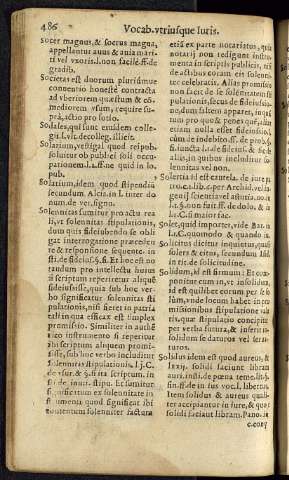 486 Vocab. vtriusque Iuris.
socer magnus, & socrus magna,
appellantur auus & auia mari-
ti vel vxoris. l. non facile. ff. de
gradib.
Societas est duorum pluriúmue
conuentio honestè contracta
ad vberiorem quæstum & cō-
modiorem vsum, require su-
prà, actio pro socio.
Sodales, qui sunt eiusdem colle-
gij. l. vlt. de colleg. illicit.
Solarium, vectigal quod reipub.
soluitur ob publici soli occu-
pationem. l. 2. ff. ne quid in lo.
pub.
Solarium, idem quod stipendiū
secundum Alciat. in l. inter do
num. de ver. signi.
Solennitas sumitur pro actu ra-
li, vt solennitas stipulationis,
dum quis fideiubendo se obli
gat interrogatione præcedeu
te & responsione sequente. in-
sti. de fideiuss. §. fi. Et hoc est no
randum pro intellectu huius
si scriptum reperitetur aliquē
fideiussisse, quia sub hoc ver-
bo significatur solennitas sti
pulationis, nisi fieret in patria
tali in qua efficax est simplex
promissio. Similiter in authē
tico instrumento si reperitur
ibi scriptum aliquem promi-
sisse, sub hoc verbo includitur
solennitas stipulationis. l. j. C.
de vsur. & §. si ita scriptum. in
sti. de inuti. stipu. Et sumitur
efficatum ex solennitate in
strumenti quod significat ibi
contentum solenniter factum
etiā ex parte notariatus, quia
notarij non redigunt instru-
menta in scriptis publicis, nisi
de actibus coram eis solenni-
ter celebratis. Aliquando su-
mitur solennitas ratione fa-
pulationis, secus de fideiussio-
ne, dum saltem appareat, inqui
rens pro quo seu pro qua, quia
enim nulla esset fideiussio,
cùm de indebito. ff. de prob. §.
si. iuncta l. si de fideiuss. & de
aliis, in quibus includitur so-
lennitas vel non.
Solertia id est cautela. de iure pa
tro. c. 1. lib. 6. per Archid. vel
genij scientia vel astutia. not. in
l. 1. §. non fuit. ff. de dolo. & in
l. 1. C. si maior fac.
Solet, quid importet, vide Bar. in
l. 1. C. quomodo & quando iu.
Solicitus dicitur inquietus, quasi
solers & citus, secundum Isid.
in tit. de solicitudine.
Solidum, id est firmum: Et com-
ponitur cum in, vt: insolidum,
id est quilibet eorum per se so
lùm, vnde locum habet in pro
missionibus stipulatione vallatis,
quæ stipulatio concipitur
per verba futura, & inferri in-
solidum se daturos vel serua
turos.
Solidus idem est quod aureus, &
lxxij. solidi faciunt libram
auri. insti. de pœna teme. liti. §.
fin. ff. de in ius voc. l. libertus.
Item solidus & aureus quali-
ter accipiantur in iure, & quot
solidi faciunt libram. Pano. in
c. cory